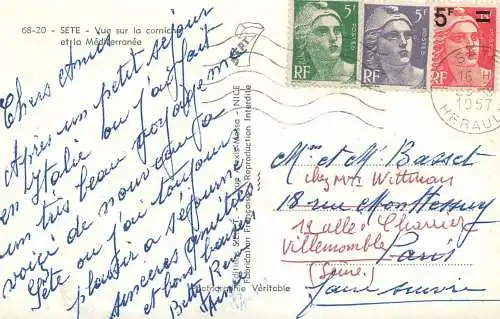 68-20 - SETE - Vue sur la corniche
et la Méditerranée
Chers Amis
Après un petit séjour
en Italie où j'ai fait
un très beau voyage me
voici de nouveau à
Sète où j'ai toujours
plaisir à séjourner
sincères amitiés
et bons baisers
5F
POSTES
RF
5F
POSTES
RF
5F
RF
SETE
16 H
1957
HERAULT
NICE
Fabrication Française - Reproduction Interdite
Photographie Véritable
Mme et M. Basset
chez Mr Wittman
18 rue Monttessuy
12 allée Charrier
Villemomble Paris
(Seine)
faire suivre